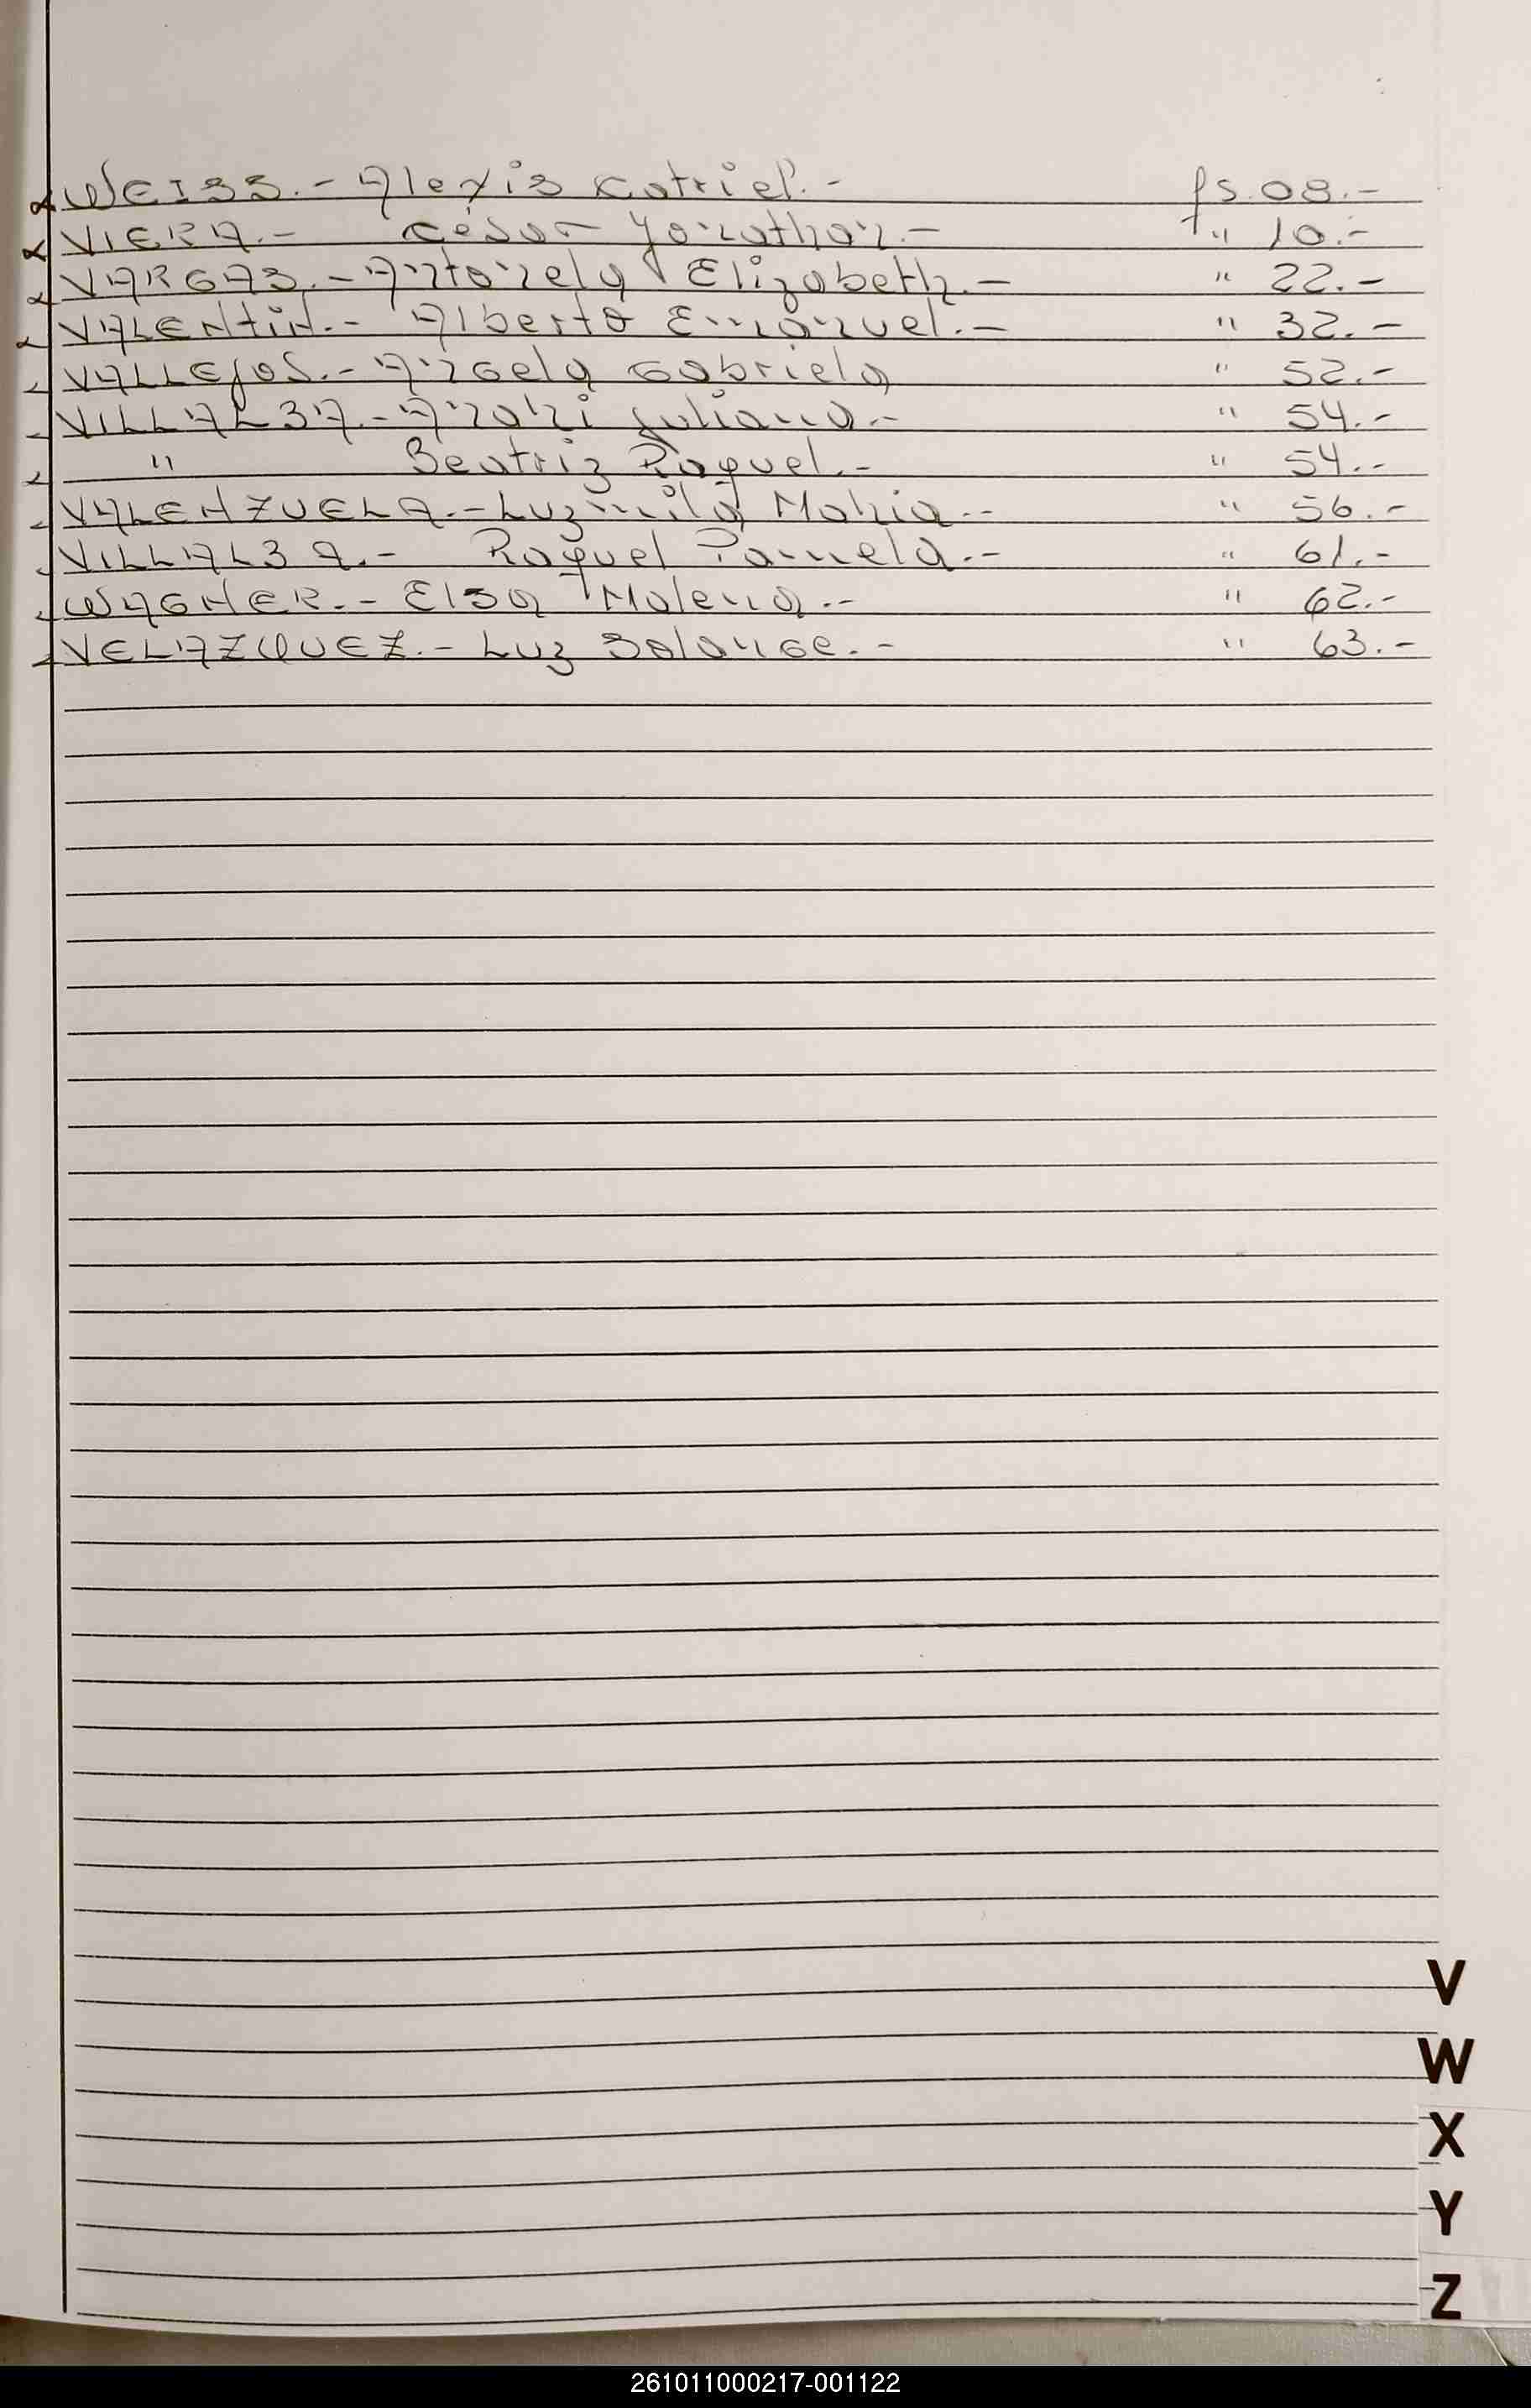 WEISS.- Alexis Catriel.- fs. 08.-
VIERA.- César Yonathan.- " 10.-
VARGAS.- Antonela Elizabeth.- " 22.-
VALENtiN.- Alberto Emanuel.- " 32.-
VALLEjOS.- Angela Gabriela " 52.-
VILLALBA.- Anahi Juliana.- " 54.-
" Beatriz Raquel.- " 54.-
VALENZUELA.- Luzmila Mahia.- " 56.-
VILLALBA.- Raquel Pamela.- " 61.-
WAGNER.- Elsa Malena.- " 62.-
VELAZQUEZ.- Luz Solange.- " 63.-
V
W
X
Y
Z
261011000217-001122